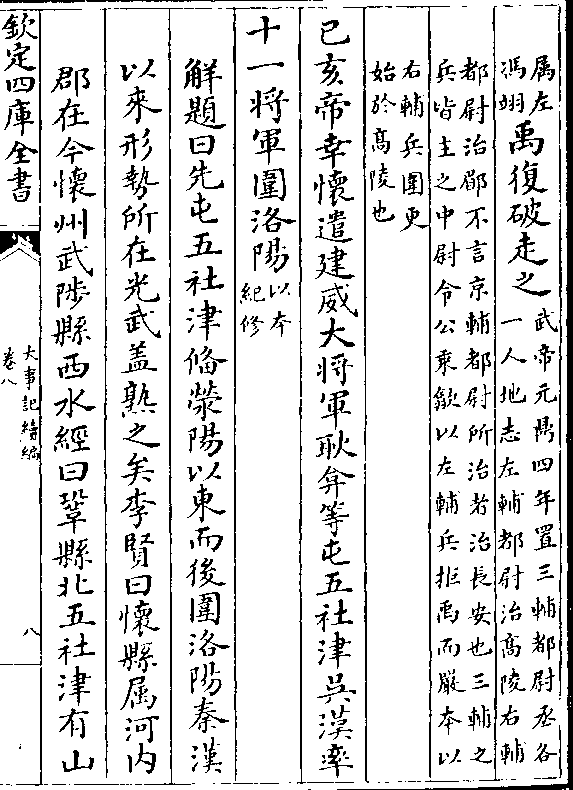 属左
馮翊
禹復破走之
武帝元鼎四年置三輔都尉丞各
一人地志左輔都尉治髙陵右輔
都尉治郿不言京輔都尉所治者治長安也三輔之
兵皆主之中尉令公乘歙以左輔兵拒禹而嚴本以
右輔兵圍更
始於髙陵也
己亥帝幸懷遣建威大將軍耿弇等屯五社津吳漢率
十一將軍圍洛陽
以本
紀修
觧題曰先屯五社津俻滎陽以東而後圍洛陽秦漢
以來形勢所在光武盖熟之矣李賢曰懷縣属河内
郡在今懷州武陟縣西水經曰鞏縣北五社津有山
欽定四庫全書
大事記續編
卷八
八